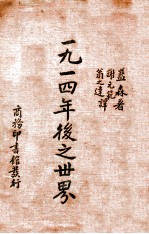 蓝森著
謝元範
翁之達譯
一九一四年後之世界
商務印書館發行